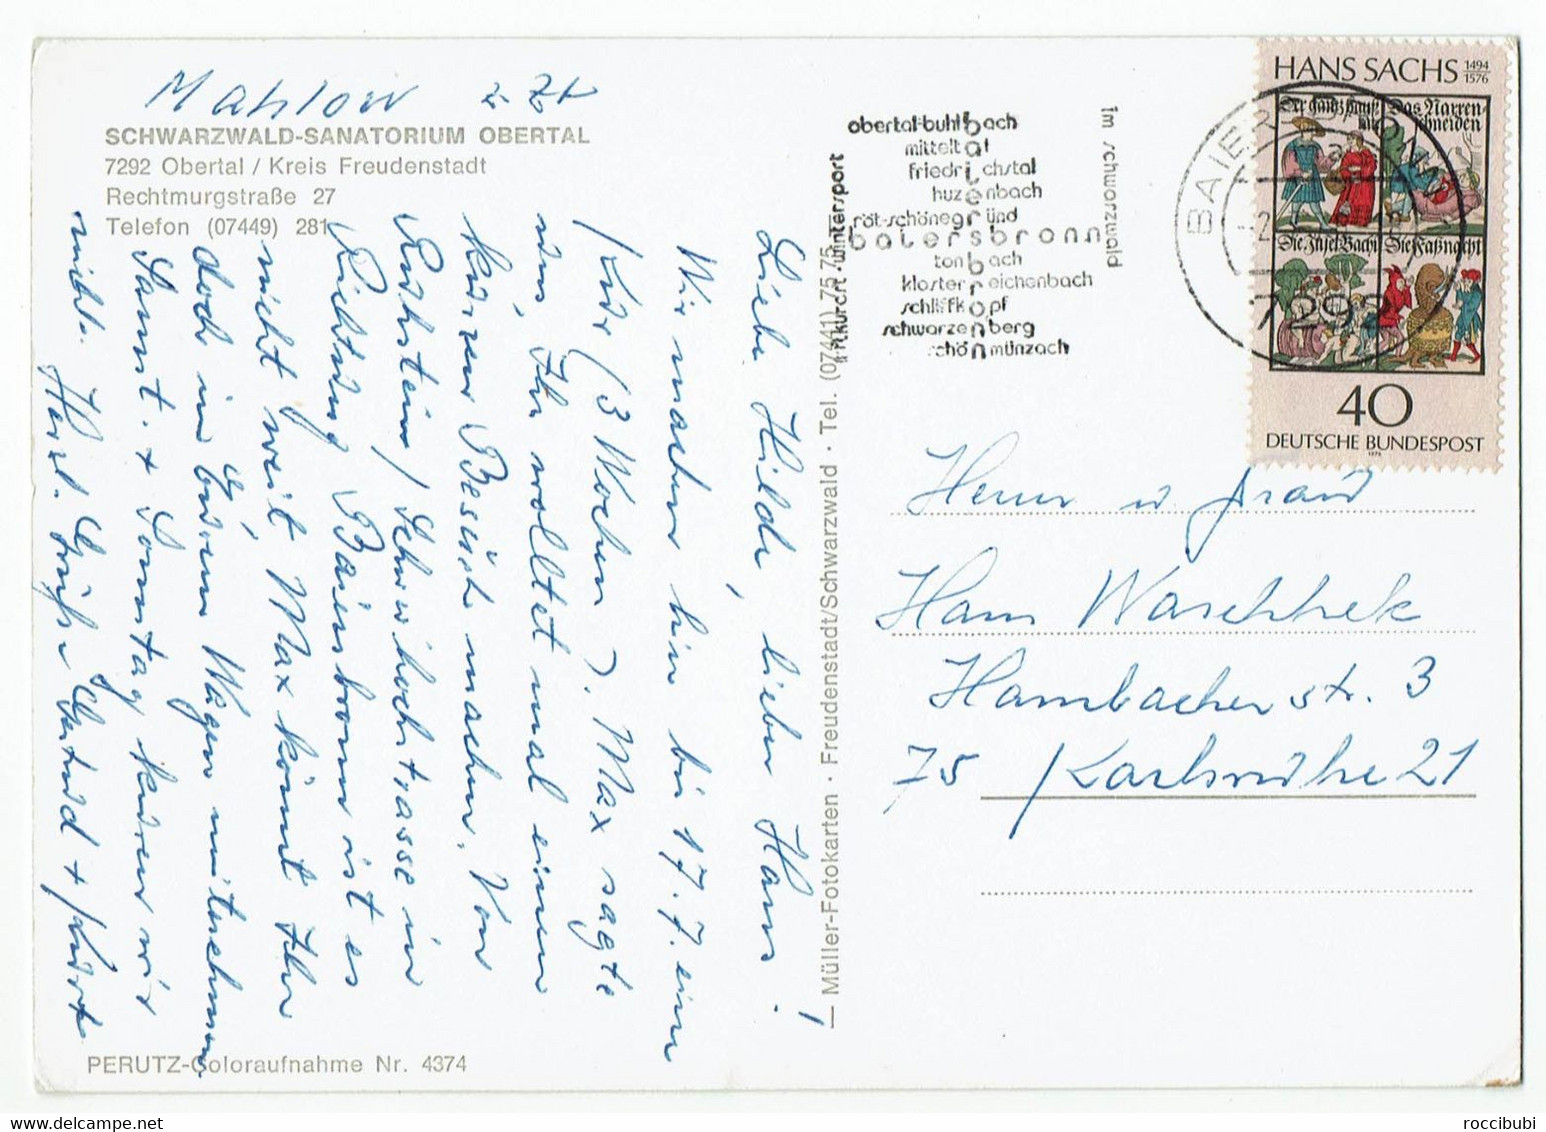 Mahlow z Zt
SCHWARZWALD-SANATORIUM OBERTAL
7292 Obertal / Kreis Freudenstadt
Rechtmurgstraße 27
Telefon (07449) 281
Liebe Hilde, lieber Hans!
Wir machen hier bis 17.7. eine
Kur (3 Wochen). Max sagte
uns, Ihr wolltet mal einen
kurzen Besuch machen. Von
Ruhstein / Schwarzwaldhochstrasse in
Richtung Baiersbronn ist es
nicht weit. Max könnt Ihr
doch in Eurem Wagen mitnehmen
Samst. + Sonntag kuren wir
nicht. Herzl. Grüße Gertrud + Kurt
PERUTZ-Coloraufnahme Nr. 4374
— Müller-Fotokarten · Freudenstadt/Schwarzwald · Tel. (07441) 75 75
obertal-buhlbach
mitteltal
friedrichstal
huzenbach
röt-schönegründ
baiersbronn
tonbach
klosterreichenbach
schliffkopf
schwarzenberg
schönmünzach
im schwarzwald
luftkurort · wintersport
BAIERSBRONN
7292
HANS SACHS 1494 1576
Der gantz Haus-
rat
Das Narren-
schneiden
Die Insel Bachi
Die Faßnacht
40
DEUTSCHE BUNDESPOST
1976
Herrn u Frau
Hans Waschhek
Hambacherstr. 3
75 Karlsruhe 21
roccibubi